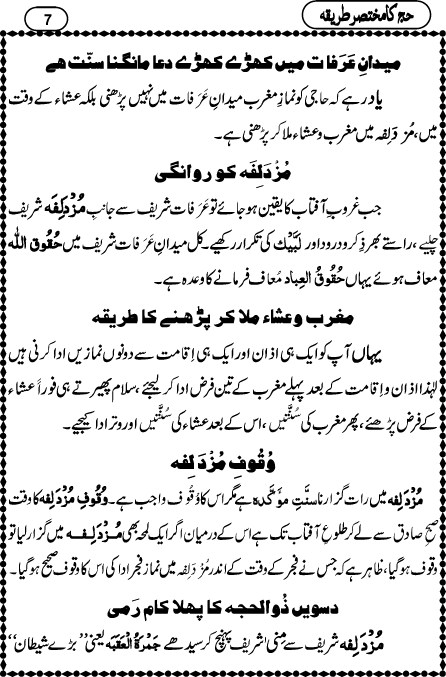 حج کا مختصر طریقہ
7
میدانِ عَرَفات میں کھڑے کھڑے دعا مانگنا سنّت ھے
یاد رہے کہ حاجی کو نمازِ مغرب میدانِ عَرَفات میں نہیں پڑھنی بلکہ عشاء کے وقت
میں، مُزدَلِفہ میں مغرب و عشاء ملا کر پڑھنی ہے۔
مُزْدَلِفَہ کو روانگی
جب غروبِ آفتاب کا یقین ہو جائے تو عَرَفات شریف سے جانبِ مُزْدَلِفَہ شریف
چلیے، راستے بھر ذِکر و درود اور لَبَّیْک کی تکرار رکھیے۔ کل میدانِ عَرَفات شریف میں حُقوق اللّٰہ
معاف ہوئے یہاں حُقُوقُ العِباد مُعاف فرمانے کا وعدہ ہے۔
مغرب وعشاء ملا کر پڑھنے کا طریقہ
یہاں آپ کو ایک ہی اذان اور ایک ہی اِقامت سے دونوں نمازیں ادا کرنی ہیں
لہٰذا اذان و اِقامت کے بعد پہلے مغرب کے تین فرض ادا کر لیجئے، سلام پھیرتے ہی فوراً عشاء
کے فرض پڑھئے، پھر مغرب کی سُنَّتیں، اس کے بعد عشاء کی سُنَّتیں اور وتر ادا کیجیے۔
وُقوفِ مُزْدَلِفَہ
مُزْدَلِفَہ میں رات گزارنا سنّتِ مؤَکَّدہ ہے مگر اس کا وُقُوف واجب ہے۔ وُقُوفِ مُزْدَلِفَہ کا وقت
صبحِ صادق سے لے کر طلوعِ آفتاب تک ہے اس کے درمیان اگر ایک لمحہ بھی مُزْدَلِفَہ میں گزار لیا تو
وقوف ہو گیا، ظاہر ہے کہ جس نے فجر کے وقت کے اندر مُزْدَلِفَہ میں نمازِ فجر ادا کی اس کا وقوف صحیح ہو گیا۔
دسویں ذُوالحجہ کا پہلا کام رَمی
مُزْدَلِفَہ شریف سے مِنٰی شریف پہنچ کر سیدھے جَمرَۃُ الْعَقَبَہ یعنی ”بڑے شیطان“